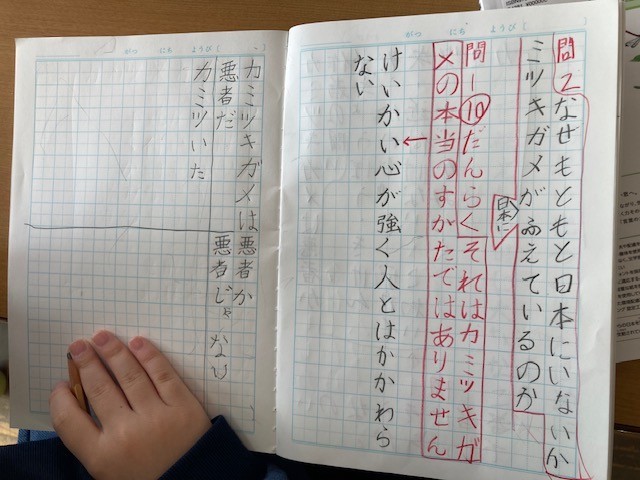 問2 なぜもともと日本にいないか
ミツキガメがふえているのか
日本に
問1 ⑩だんらく それはカミツキガ
メの本当のすがたではありません
けいかい心が強く人とはかかわら
ない
カミツキガメは悪者か
悪者だ
悪者じゃない
カミツいた